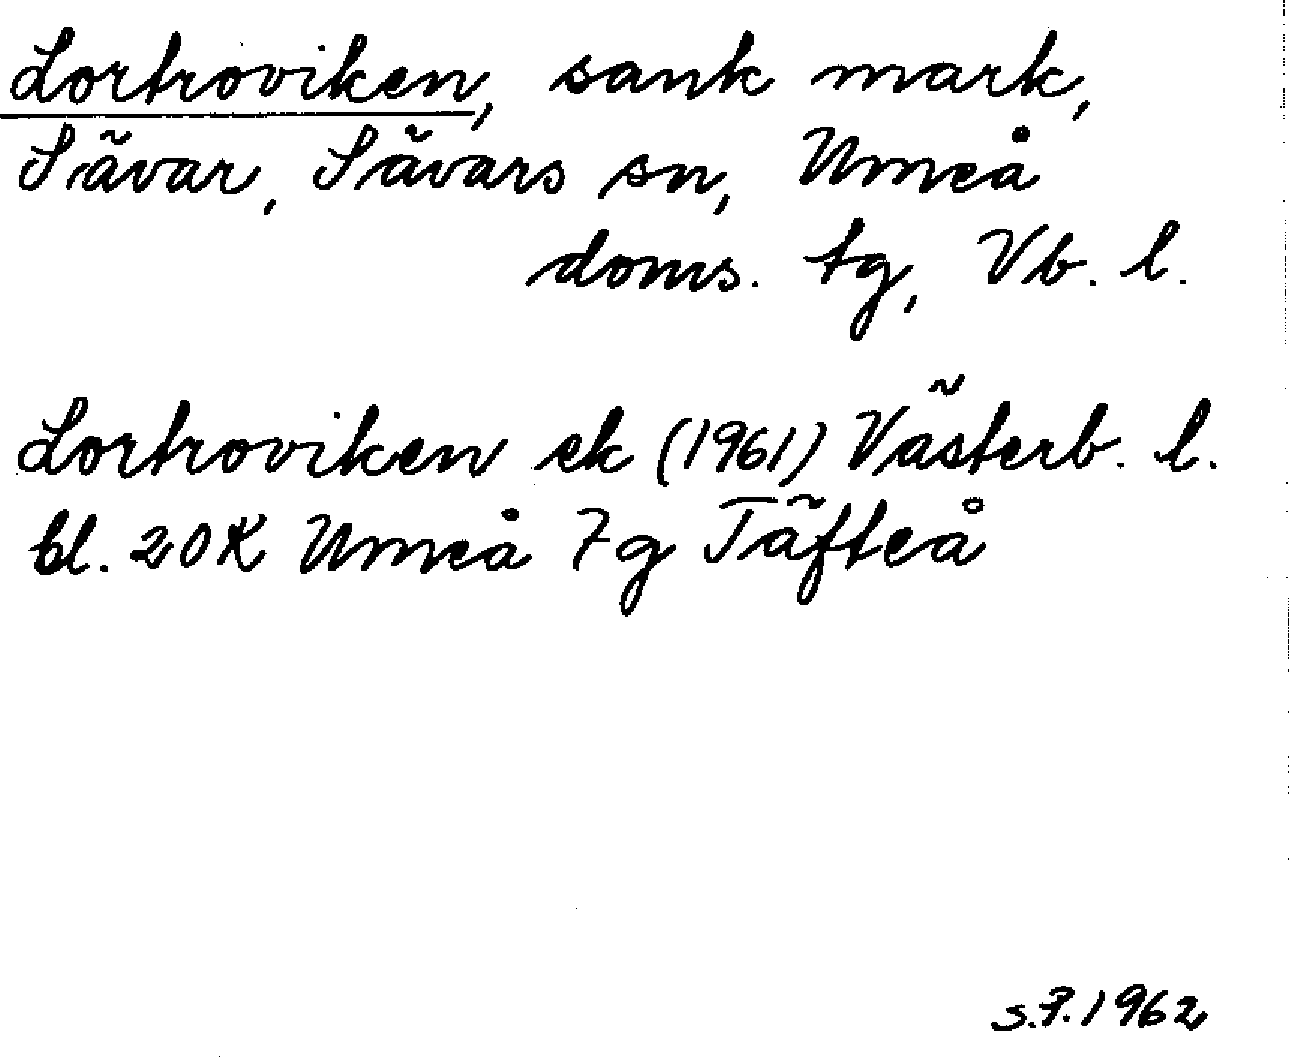 Lortroviken, sank mark,
Sävar, Sävars sn, Umeå
doms. tg, Vb. l.
Lortroviken ek (1961) Västerb. l.
bl. 20K Umeå 7g Täfteå
S.P. 1962